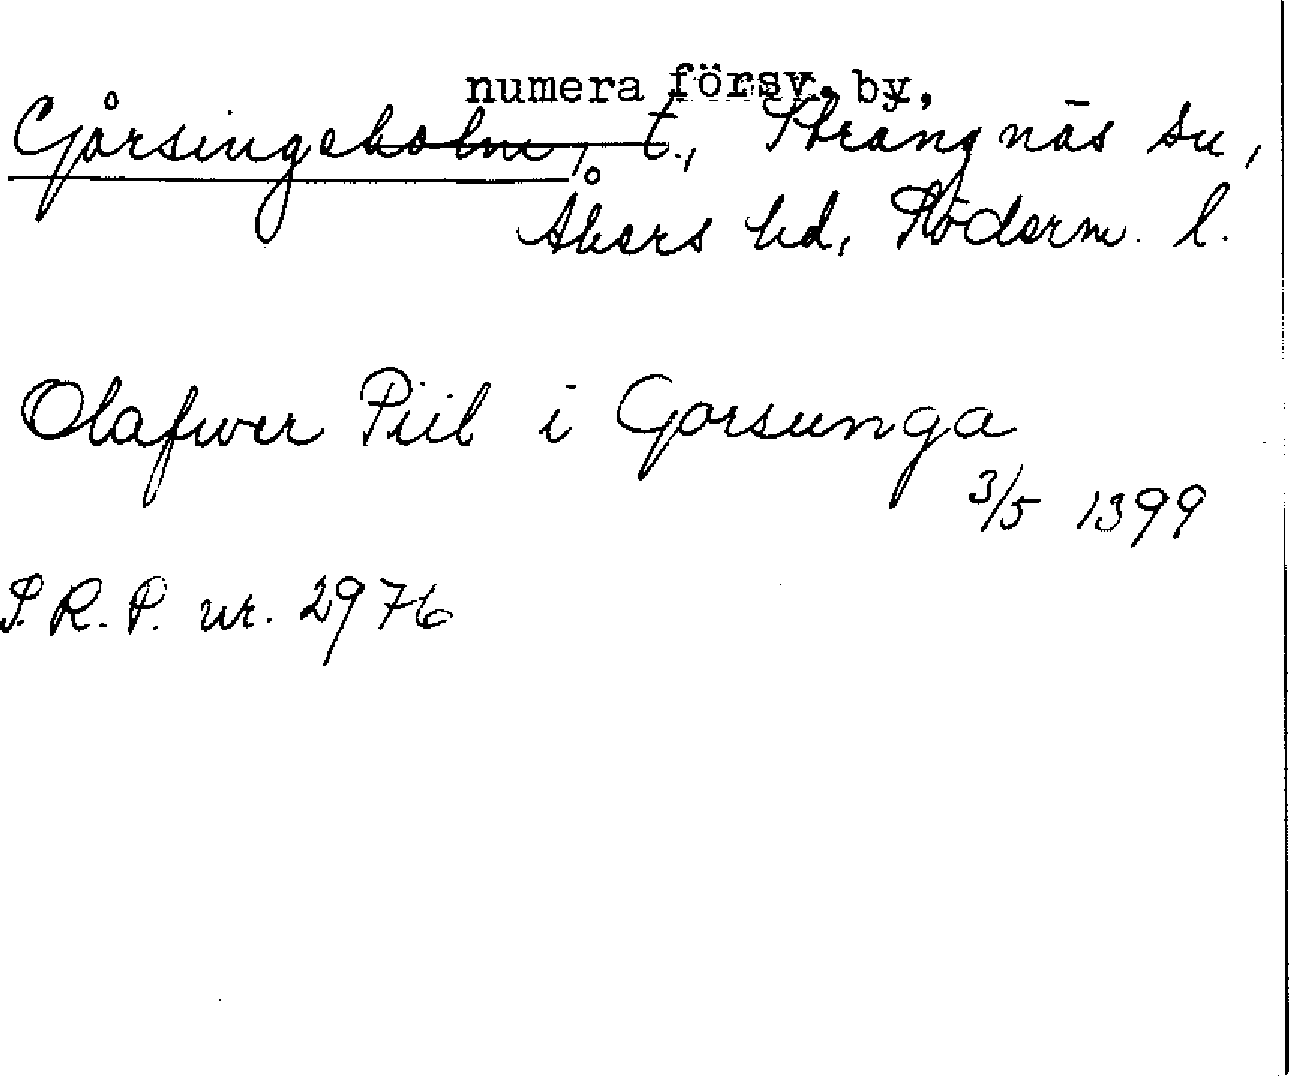 numera försv. by,
Gårsingeholm, t., Strängnäs sn,
Åkers hd, Söderm. l.
Olafwer Piil i Gorsunga
3/5 1399
S.R.P. nr. 2976